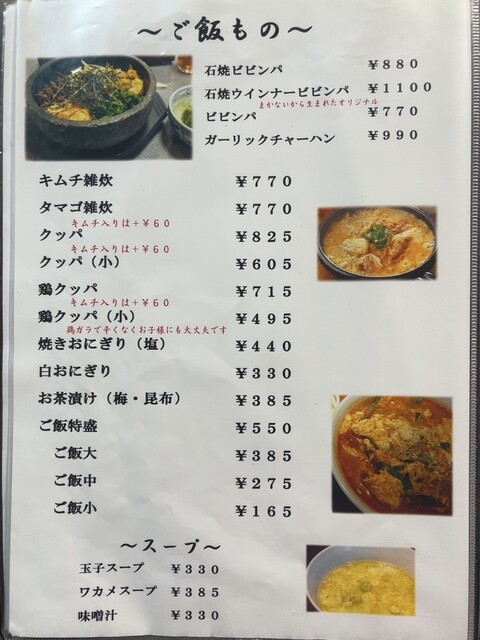 ～ご飯もの～
石焼ビビンパ ￥880
石焼ウインナービビンパ ￥1100
まかないから生まれたオリジナル
ビビンパ ￥770
ガーリックチャーハン ￥990
キムチ雑炊 ￥770
タマゴ雑炊 ￥770
キムチ入りは+￥60
クッパ ￥825
キムチ入りは+￥60
クッパ（小） ￥605
鶏クッパ ￥715
キムチ入りは+￥60
鶏クッパ（小） ￥495
鶏ガラで辛くなくお子様にも大丈夫です
焼きおにぎり（塩） ￥440
白おにぎり ￥330
お茶漬け（梅・昆布） ￥385
ご飯特盛 ￥550
ご飯大 ￥385
ご飯中 ￥275
ご飯小 ￥165
～スープ～
玉子スープ ￥330
ワカメスープ ￥385
味噌汁 ￥330